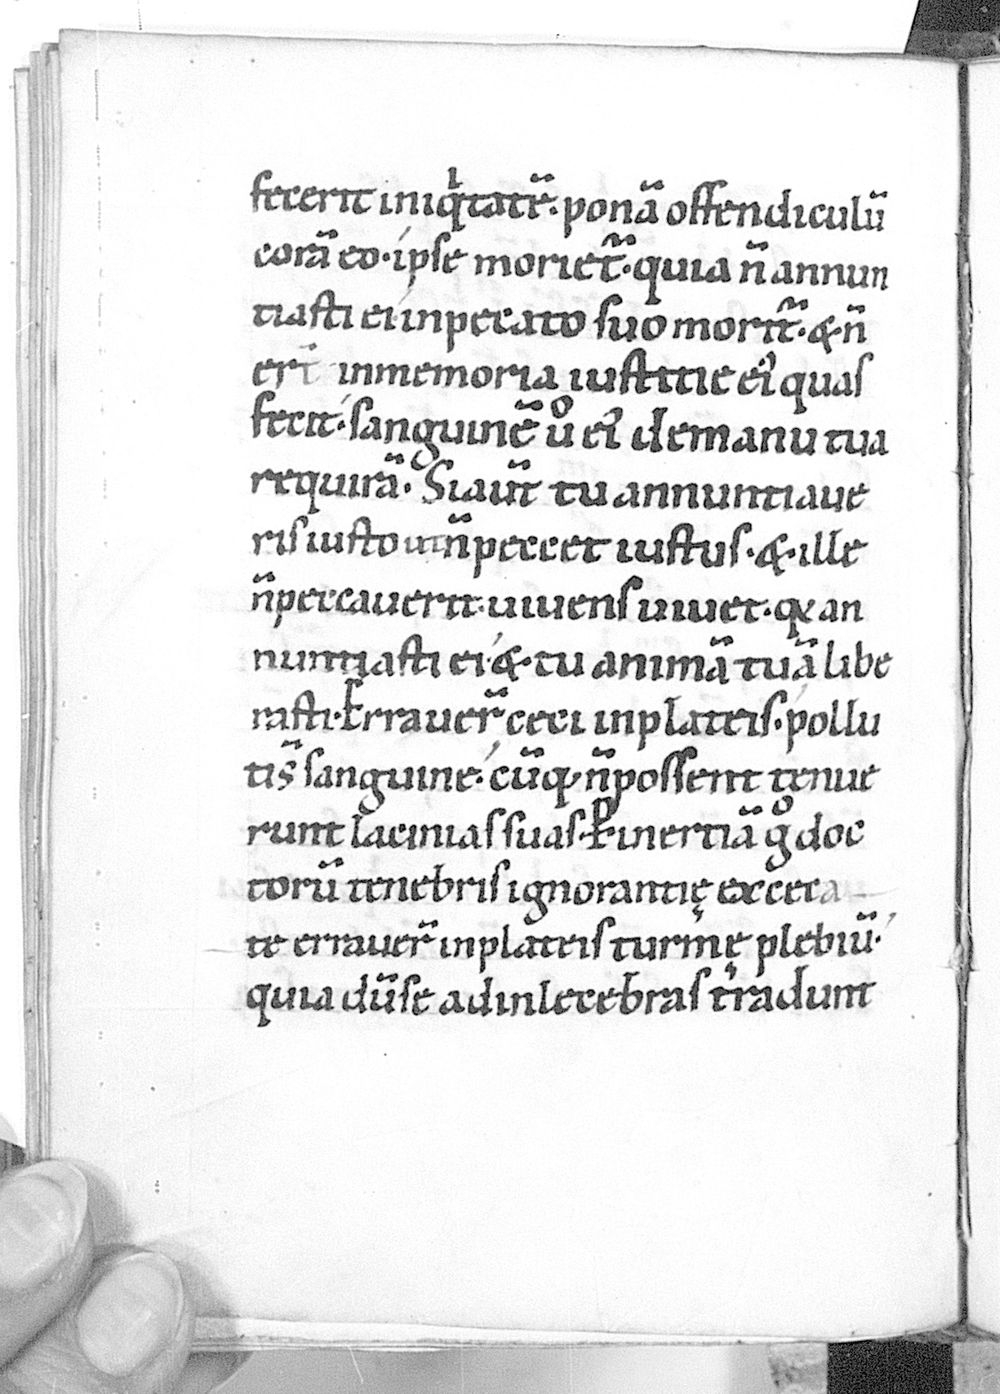 fecerit iniq̍tatē. ponā offendiculū
corā eo. ipse moriet᷑. quia n̄ annun
tiasti ei. inpecato suo morit᷑. & n̄
er̄t inmemoria iustitie ei᷒ quas
fecit. sanguinē u̅o ei᷒ demanu tua
requirā. Siaūt tu annuntiaue
ris iusto utn̄peccet iustus. & ille
n̄peccauerit. uiuens uiuet. qa an
nuntiasti ei. & tu animā tuā libe
rasti. Errauer̄ ceci inplateis. pollu
tis̄ sanguine. cūq; n̄possent tenue
runt lacinias suas. P̱inertiā gͦ doc
torū tenebris ignorantię exceca
te errauer̄ inplateis turmę plebiū.
quia dū se adinlecebras t̍radunt